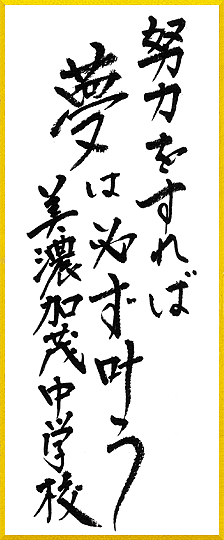 努力をすれば
夢は必ず叶う
美濃加茂中学校